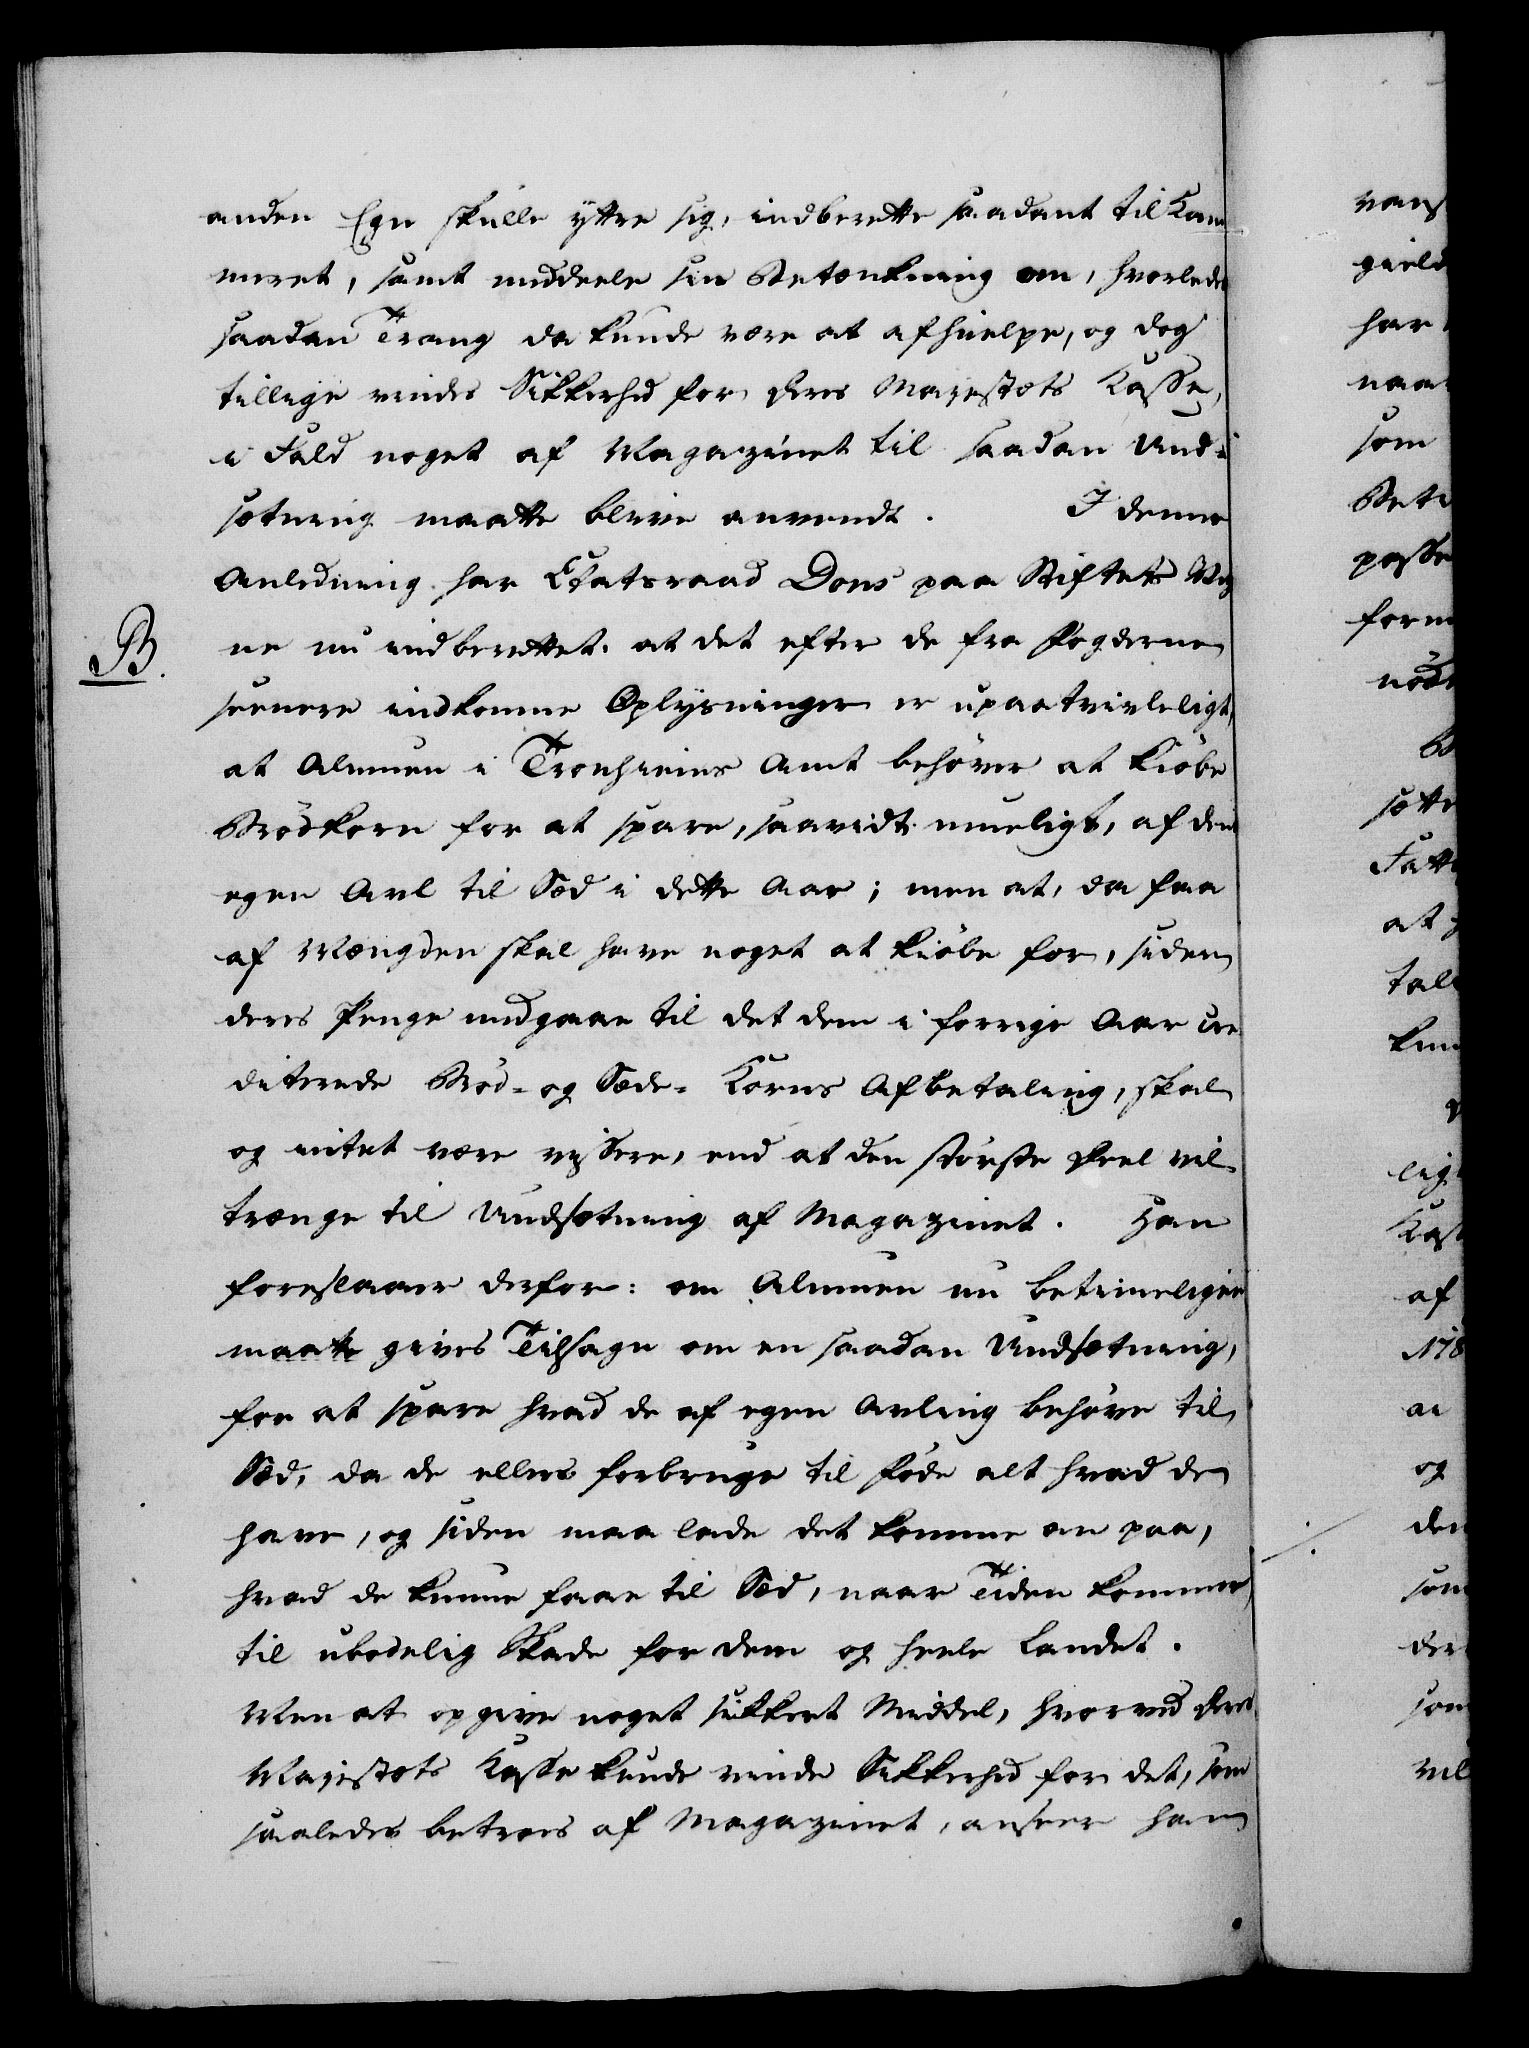 anden Egn skulle yttre sig, indberette saadant til Kam
meret, samt meddeele sin Betænkning om, hvorledes
saadan Trang da kunde være at afhielpe, og dog
tillige vindes Sikkerhed for Deres Majestæts Kasse,
i Fald noget af Magazinet til saadan Und-
sætning maatte blive anvendt. I denne
Anledning har Etatsraad Dons paa Stiftets Veg
ne nu indberettet: at det efter de fra Fogderne
B.
seenere indkomne Oplysninger er upaatvivleligt,
at Almuen i Tronhiems Amt behöver at kiöbe
Brödkorn for at spare, saavidt mueligt, af den
egen Avl til Sæd i dette Aar; men at, da faa
af Mængden skal have noget at kiöbe for, siden
deres Penge medgaae til det dem i forrige Aar cre
diterede Bröd- og Sæde-Korns Afbetaling, skal
og intet være vissere, end at den störste Deel vil
trænge til Undsætning af Magazinet. Han
foreslaaer derfor: om Almuen nu betimeligen
maatte gives Tilsagn om en saadan Undsætning,
for at spare hvad de af egen Avling behöve til
Sæd, da de ellers forbruge til Föde alt hvad de
have, og siden maa lade det komme an paa,
hvad de kunne faae til Sæd, naar Tiden kommer,
til ubodelig Skade for dem og heele Landet.
Men at opgive noget sikkert Middel, hvorved Deres
Majestæts Kasse kunde vinde Sikkerhed for det, som
saaledes betroes af Magazinet, anseer han